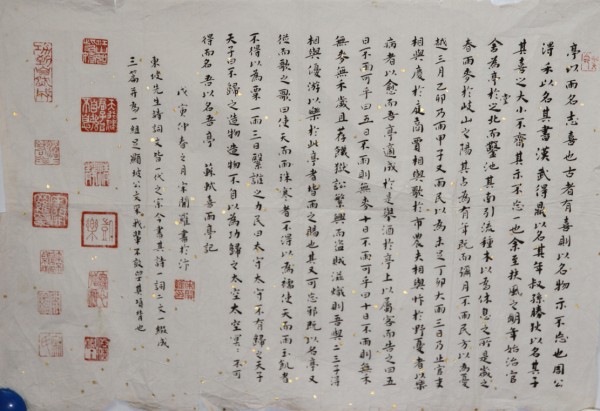 亭以雨名志喜也古者有喜則以名物示不忘也周公
得禾以名其書漢武得鼎以名其年叔孫勝狄以名其子
其喜之大小不齊其示不忘一也余至扶風之明年始治官
舍為亭於堂之北而鑿池其南引流種木以為休息之所是歲之
春雨麥於岐山之陽其占為有年既而彌月不雨民方以為憂
越三月乙卯乃雨甲子又雨民以為未足丁卯大雨三日乃止官吏
相與慶於庭商賈相與歌於市農夫相與忭於野憂者以樂
病者以愈而吾亭適成於是舉酒於亭上以屬客而告之曰五
日不雨可乎曰五日不雨則無麥十日不雨可乎曰十日不雨則無禾
無麥無禾歲且荐饑獄訟繁興而盜賊滋熾則吾與二三子得
相與優游以樂於此亭者皆雨之賜也其又可忘邪既以名亭又
從而歌之歌曰使天而雨珠寒者不得以為襦使天而雨玉飢者
不得以為粟一雨三日繄誰之力民曰太守太守不有歸之天子
天子曰不歸之造物造物不自以為功歸之太空太空冥冥不可
得而名吾以名吾亭 蘇軾喜雨亭記
戊寅仲春之月宋蘭書於汴
東坡先生詩詞文皆一代之宗今書其詩一詞二文一綴成
三篇并為一組